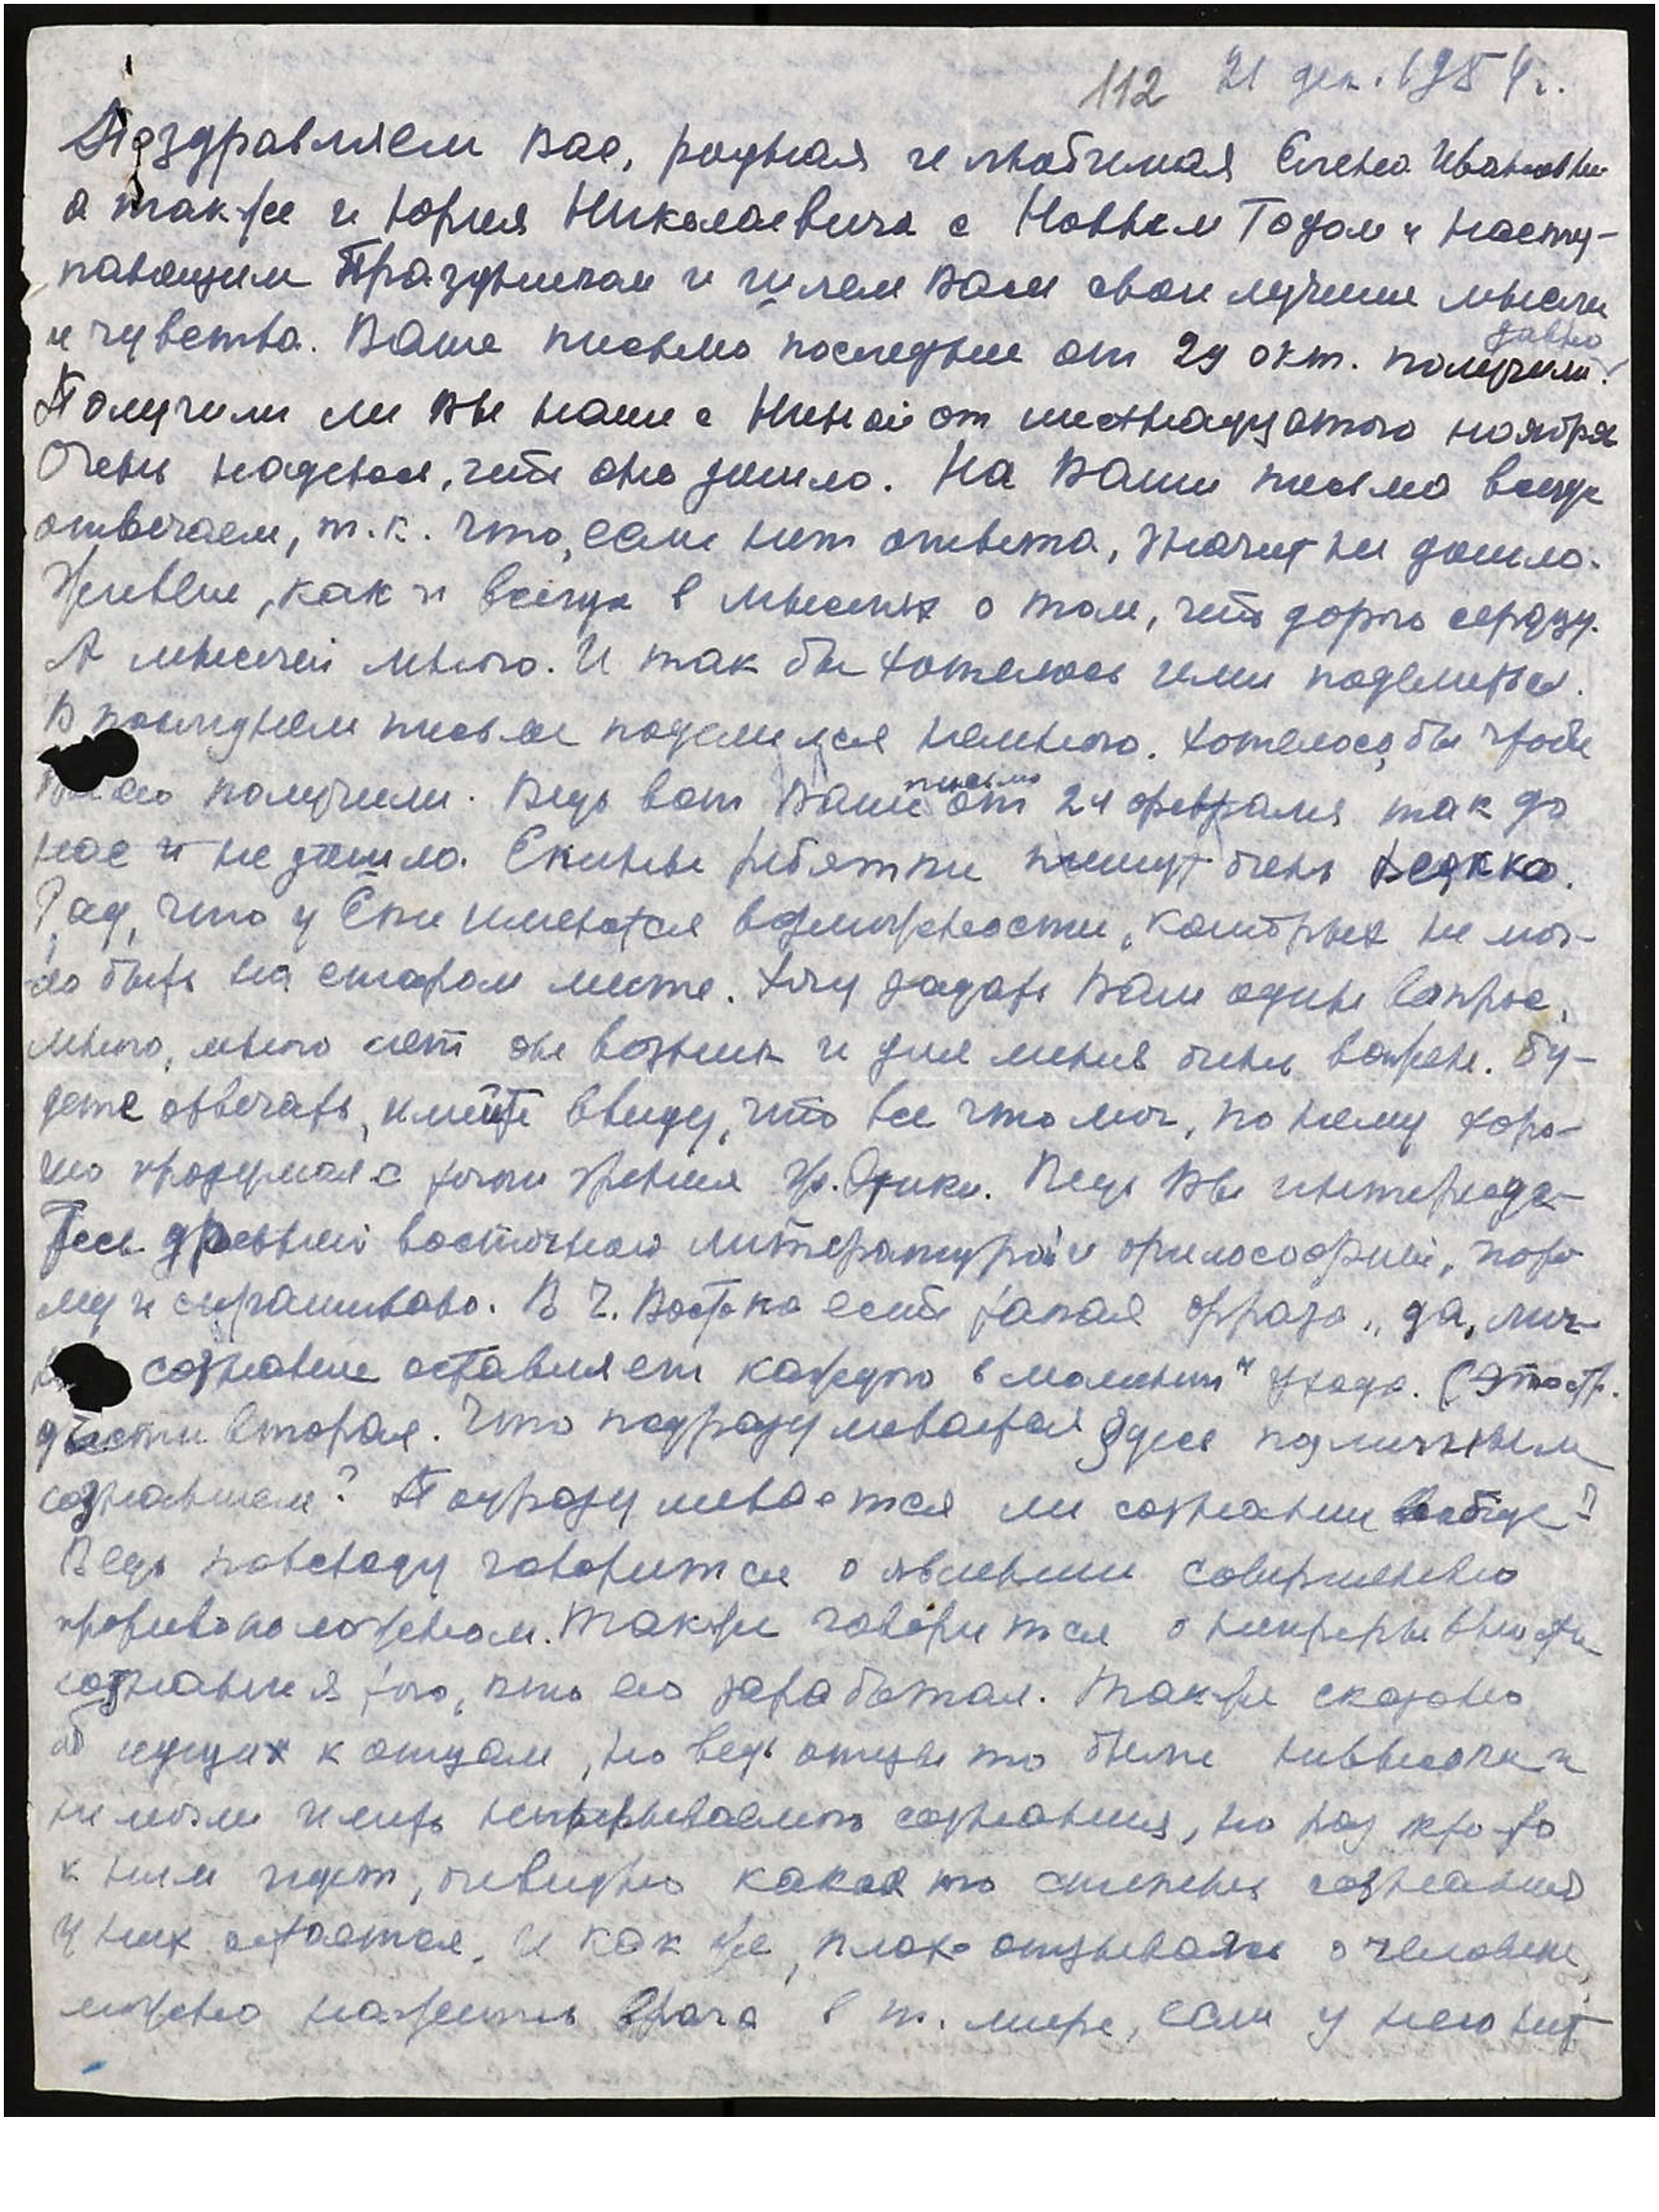 112 21 дек. 1954 г.
Поздравляем Вас, родная и любимая Елена Ивановна
а также и Юрия Николаевича с Новым Годом и насту-
пающим Праздником и шлем Вам свои лучшие мысли
и чувства. Ваше письмо последнее от 29 окт. давно получили.
Получили ли Вы наше с Ниной от шестнадцатого ноября
Очень надеюсь, что оно дошло. На Ваши письма всегда
отвечаем, т.к. что, если нет ответа, значит не дошло.
Живем, как и всегда в мыслях о том, что дорого сердцу.
А мыслей много. И так бы хотелось ими поделиться.
В последнем письме поделился немного. Хотелось бы чтобы
Вы его получили. Ведь вот Ваше письмо от 24 февраля так до
нас и не дошло. Екины ребятки пишут очень редко.
Рад, что у Еки имеются возможности, которых не мог-
ло быть на старом месте. Хочу задать Вам один вопрос,
много, много лет он возник и для меня очень важен. Бу-
дете отвечать, имейте ввиду, что все что мог, по нему хоро-
шо продумал с точки зрения Ж. Этики. Ведь Вы интересуе-
тесь древней восточной литературой и философией, пото
му и спрашиваю. В Ч. Востока есть такая фраза „да, лич-
сознание оставляет каждого в момент" ухода. (Это стр.
двести вторая. Что подразумевается здесь под личным
сознанием? Подразумевается ли сознание вообще?
Ведь повсюду говорится о явлении совершенно
противоположном. Также говорится о непрерывности
сознания того, кто его заработал. Также сказано
об идущих к отцам, но ведь отцы то были невысоки и
не могли иметь непрерываемого сознания, но раз кто-то
к ним идет, очевидно какая то степень сознания
у них остается. И как же, плохо отзываясь о человеке,
можно нажить врага в т. мире, если у него нет